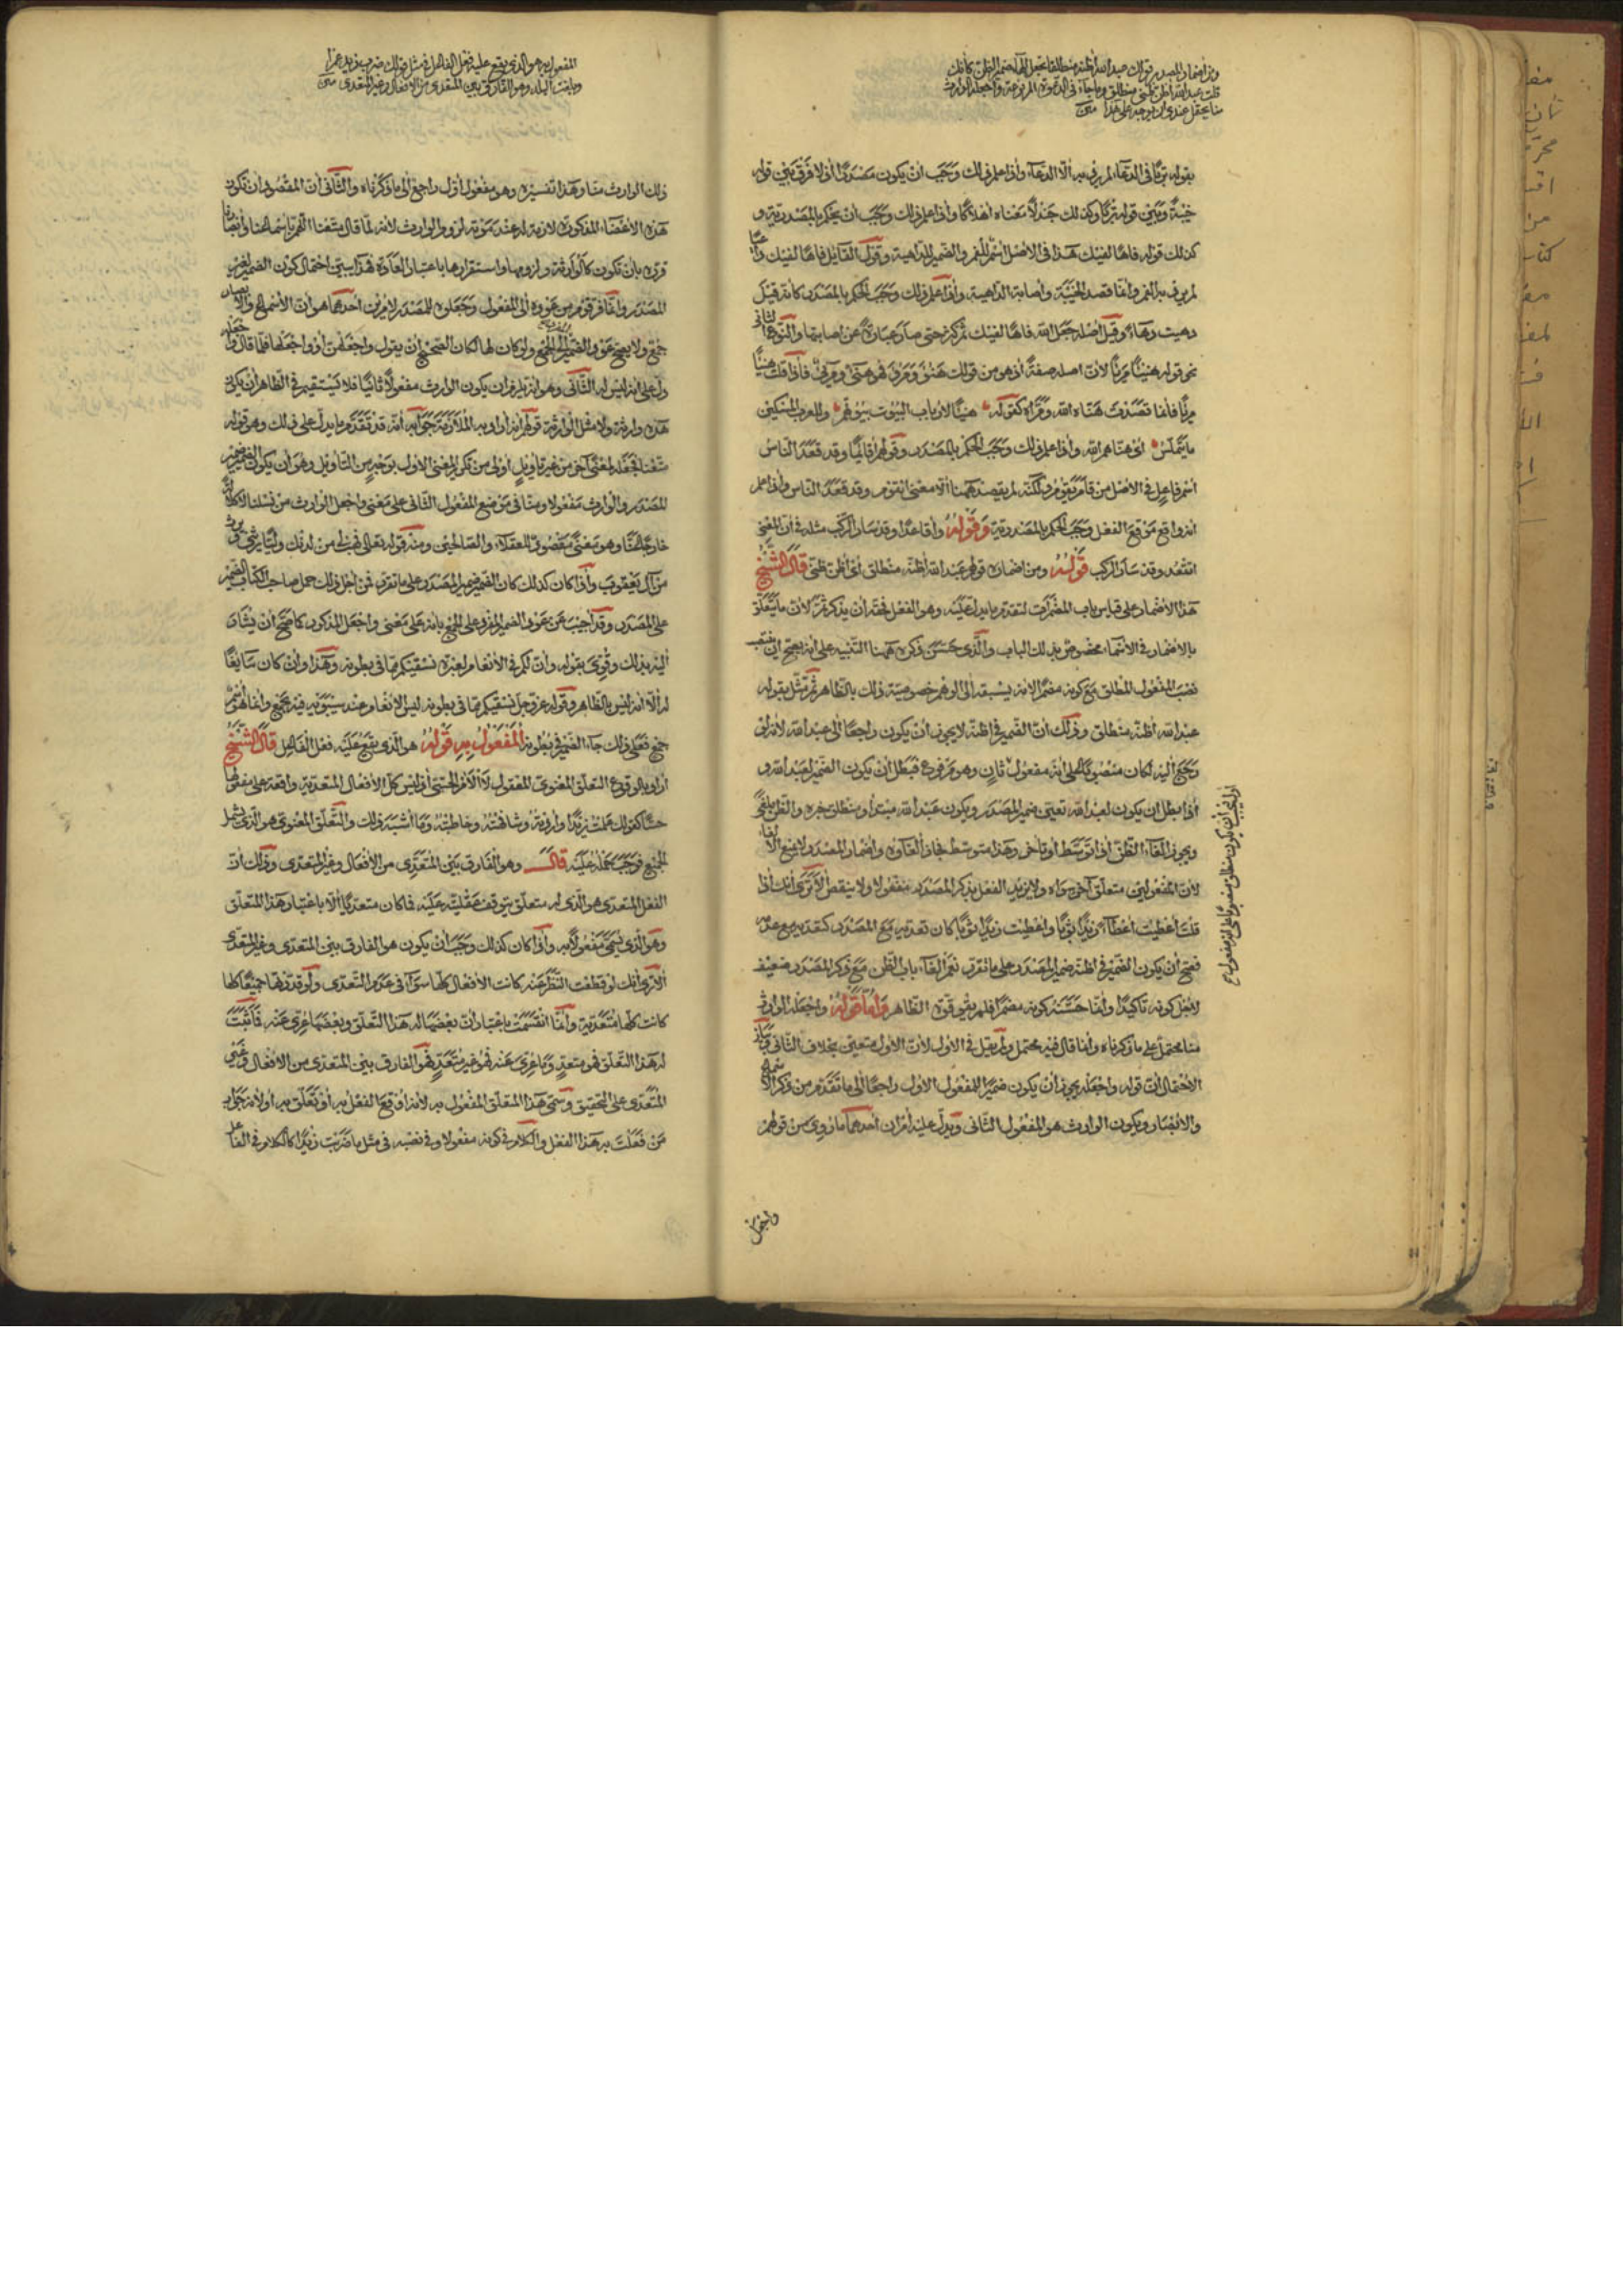 ومن اضمار المصدر قولك عبد الله أظنه منطلق تجعل الهاء ضمير الظن كأنك
قلت عبد الله أظن ظني منطلق وما جاء في الدعوة المرفوعة واجعله الوارث
منا يحتمل عندي أن يوجه على هذا متن
بقوله تربًا في الدعاء لم يرد به الّا الدعاء وأذا علم ذلك وَجَب ان يكون مصدرًا أذ لا فرق بَيْن قوله
خَيبةً وبَيْن قوله تربًا وكذلك جندلًا مَعْناه أهلاكا وأذا علم ذلك وَجَبَ أنْ يحكم بالمصدرية و
كذلك قوله فاها لفيك هذا في الأصْل اسْم للفم والضمير للداهية وقول القايل فاها لفيك
لم يرد به الفم وأنما قصد الخيبة وأصابة الداهية وأذا علم ذلك وَجَبَ الحكم بالمصدر كأنه قيل
دهيت دهاءً وقيل أصله جَعَل الله فاها لفيك ثم كثر حتى صار عبارةً عن اصابتها والنوع الثاني
نحو قوله هنيئًا مريئًا لأنّ اصله صفةٌ أذ هو من قولك هَنُؤ ومَرُؤ فهو هنيٌّ ومريٌّ فأذا قلت هنيئًا
مريئًا فأنما تقصد هَنَاه الله ومَرَّاه كقوله هنيئًا لأرباب البُيُوت بيُوتهم وللعزب المسكين
ما يتلمّسُ أي هنّاهم الله وأذا علم ذلك وَجَبَ الحكم بالمصدر وقولهم أقائمًا وقد قعَدَ النّاسُ
اسْم فاعلٍ في الأصْل من قامَ يَقُومُ ولكنه لم يقصد هٰهنا الّا معنى أتقوم وقد قعَدَ النّاس وأذا علم
انه واقع مَوْقعَ الفعل وَجَبَ الحكم بالمصدرية وَقَوْلهُ وأقاعدًا وقد سَار الرّكب مثله في أنّ المعْنى
أتقعد وقد سَار الركب قَوْلهُ ومن اضماره قولهم عَبد الله أظنّه منطلق أي أظن ظنّي قالَ الشّيْخ
هَذا الأضمار على قياس باب المضْمَرات لتقدم ما يدل عَلَيْه وهو الفعْل فحقه أن يذكر ثَمَّ لأنّ ما يتَعَلّق
بالأضمار في الأسْماء مخصُوصٌ بذلك الباب والّذي حَسّنَ ذكره هٰهنا التّنبيه على أنه يصح أن ينتصب
نصْبَ المَفْعُول المُطْلق مَعَ كونه مضمرًا لأنه يسْبقه الى الوهم خصوصيّة ذلك بالظّاهر ثم مَثّل بقوله
عبد الله أظنّه منْطلق وذلك انّ الضّمير في اظنّه لا يجوز أنْ يكون راجعًا الى عبد الله لأنه لو
رَجَعَ اليْه لكان منْصُوبًا على أنّه مفعولٌ ثانٍ وهو مَرفوع فبَطل أنْ يكون الضّمير لعَبد الله و
أذا بطل ان يكون لعَبْد الله تعيّن ضمير المصْدَر ويكون عَبْد الله مبتدأ ومنطلق خبره والظّن ملغًى
ويجوز ألْغاء الظّن أذا توَسّط أو تأخّر وهذا متوسّط فجاز ألغاؤه وأضْمار المصْدر لا يمنع الألغاء
لأنّ المفْعُولين متعلّق آخر سِوَاه ولا يزيد الفعْل بذكر المصْدَر مفعُولا ولا ينقص ألا تَرَى أنك أذا
قلْتَ أعْطيْت أعْطاءً زيْدًا ثوْبًا وأعْطيْت زيْدًا ثوْبًا كان تعديه مَعَ المصْدَر كتعديه مع عدمه
فصح أن يكون الضّمير في اظنّه ضمير المصْدَر على ما تقرر نعم ألغاء باب الظّن مَعَ ذكر المصْدَر ضعيْف
لأجْل كونه تأكيدًا وأنما حَسّنَه كونه مضمرًا فلم يقو قوّة الظّاهر وَأمَّا قَوْلهُ واجْعَلْه الوارث
منا محتمل على ما ذكرناه وأنما قال فيه محتمل ولم يقل في الأول لأنّ الأول متعيّن بخلاف الثّاني وبَيان
الأحْتمال أنّ قوله واجْعَلْه يجوز أنْ يكون ضميرًا للمفعُول الأوّل راجعًا الى ما تقدّم من ذكر الأسْماع
والأبْصار ويكون الوارث هو المفْعُول الثّاني ويَدلّ عليْه أمران أحدهما ما رُوي من قولهم
واجعل
المفعول به هو الذي يقع عليه فعل الفاعل في مثل قولك ضرب زيد عمرًا
وبلغت البلد وهو الفارق بين المتعدي من الأفعال وغير المتعدي متن
ذلك الوارث منّا وهَذا تفسيْره وهو مفعُول أوّل راجع الى ما ذكرْناه والثّاني أنّ المقْصُود أن تكون
هَذه الأعْضاء المذكورَة لازمة له عنْد مَوْته لزُوم الوارث لأنه لمّا قال متّعْنا اللهم بأسْماعنا وأبْصارنا
المصْدَر وأنّما فرّ قوْم من عَوْده الى المفعول وجَعَلوه للمصْدَر لأمريْن أحدهما هو أنّ الأسْماع والأبصار
جَمْع ولا يصح عَوْد الضّمير الى الجمْع ولو كان لها لكان الصّحيْح أنْ يقول واجْعَلْهن أوْ واجْعَلْها فلمّا قال واجعله
دلّ على أنه ليْس له الثّاني وهو أنه يلزم ان يكون الوارث مفعولًا ثانيًا فلا يسْتقيم في الظّاهر أنْ يكون
متّعْنا فجَعْله لمعنًى آخر من غير تأويْلٍ أوْلى من تكرير المعنى الأول بوَجْهٍ من التّأويْل وهو أن يكون الضمير
للمصْدَر والوارث مفْعُولا ومنّا في مَوْضع المفْعُول الثّاني على مَعْنى واجْعل الوارث من نسْلنا لا كلالة
خارجًا عنّا وهو مَعْنًى مَقْصُود للعقلاء والصّالحيْن ومنه قوله تعالى فهب لي من لدنك وليًّا يرثني ويرث
منْ آل يَعْقوب وأذا كان كذلك كان الضّمير ضمير المصْدَر على ما تقرّر ثمّ من أجل ذلك حمل صاحب الكتاب الضمير
على المصْدَر وقد أجيْبَ عَن عَوْد الضمير المفرد على الجمْع بأنه عَلى مَعْنى واجْعَل المذكور كما صَحّ أنْ يشار
اليْه بذلك وقُوّيَ بقوله وأنّ لكم في الأنْعام لعبْرة نسْقيْكم ممّا في بطونه وهَذا وأنْ كان سَايغًا
له الّا انه ليْس بالظّاهر وقوله عَزّ وجلّ نسْقيْكم ممّا في بطونه ليْس الأنْعام عنْد سيْبَوَيْه فيه بجَمْعٍ وأنما هو اسْم
جَمْعٍ فعَلى ذلك جاء الضّمير في بُطونه المَفْعُولُ بِهِ قَوْلهُ هو الّذي يقع عَلَيْه فعْل الفَاعِل قالَ الشّيْخ
أراد بالوقوع التعلّق المعْنوي المعْقول لا الأمْر الحسّيّ أذ ليْس كلّ الأفعال المتعدّية واقعة على مفعولها
حسًّا كقولك علمْتُ زيْدًا وأردْتهُ وشافهْتُهُ وخاطبْتُهُ وَمَا أشْبَهَ ذلك والتّعلّق المعْنوي هو الّذي يشمل
الجميْع فوَجَبَ حَمْلهُ عَلَيْه قال وهو الفَارق بَيْن المُتَعَدّي من الأفْعال وغَيْر المتعدّي وذلك أنّ
الفعْل المتعدّي هو الّذي له متعلّق تتوقف عَقْليّته عَلَيْه فما كان متعدّيًا الّا باعْتبار هَذا المتعلّق
وهو الّذي يُسَمّى مَفْعُولًا به وأذا كان كذلك وَجَبَ أنْ يكون هو الفارق بيْن المتعدّي وغير المتعدّي
ألا ترى أنّك لو قطعْت النّظر عَنْه كانت الأفعال كلّها سَوَآءً في عَدَم التّعدّي ولو قدّرتها جميْعًا لها
كانت كلّها مُتعدّية وأنّما انقَسَمَتْ باعْتبار أنّ بعْضهَا له هَذا التّعلّق وبعْضهَا عَرِيّ عَنْه فمَا ثَبَتَ
له هَذا التّعلّق فهو متعدٍّ وَمَا عَرِيَ عَنه فهُوَ غيْر مُتَعَدٍّ فهو الفارق بيْن المتعدّي من الأفعال وغَيْر
المُتَعَدّي على التحقيق وسُمّي هَذا المتعلّق المفْعُول به لأنه أوْقعَ الفعْل به أوْ تَعَلّق به أو لأنه جَوَاب
مَنْ فعَلْت به هَذا الفعْل والكلام في كونه مفعُولا وفي نصْبه في مثل ما ضَرَبْت زيْدًا كالكلام في الفاعل